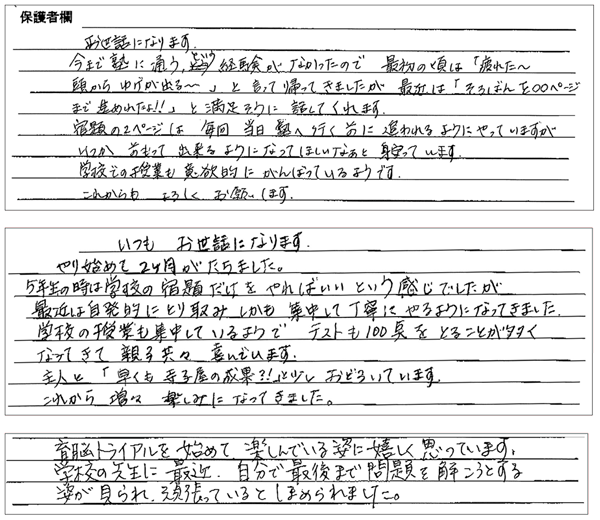 保護者欄
お世話になります。
今まで塾に通う、経験がなかったので 最初の頃は「疲れた〜
頭からゆげが出る〜」と言って帰ってきましたが 最近は「そろばんを〇〇ページ
まで進めれたよ!!」と満足そうに話してくれます。
宿題の2ページは 毎回 当日 塾へ行く前に追われるようにやっていますが
いつか 前もって出来るようになってほしいなぁと 見守っています。
学校での授業も意欲的にがんばっているようです。
これからも よろしく お願いします。
いつも お世話になります。
やり始めて2ヶ月がたちました。
5年生の時は学校の宿題だけをやればいいという感じでしたが
最近は自発的にとり取みしかも集中して丁寧にやるようになってきました。
学校の授業も集中しているようで テストも100点をとることが多く
なってきて 親子共々 喜んでいます。
主人と「早くも寺子屋の成果?!」と少しおどろいています。
これから 増々 楽しみになってきました。
育脳トライアルを始めて、楽しんでいる姿に嬉しく思っています。
学校の先生に最近、自分で最後まで問題を解こうとする
姿が見られ、頑張っているとほめられました。